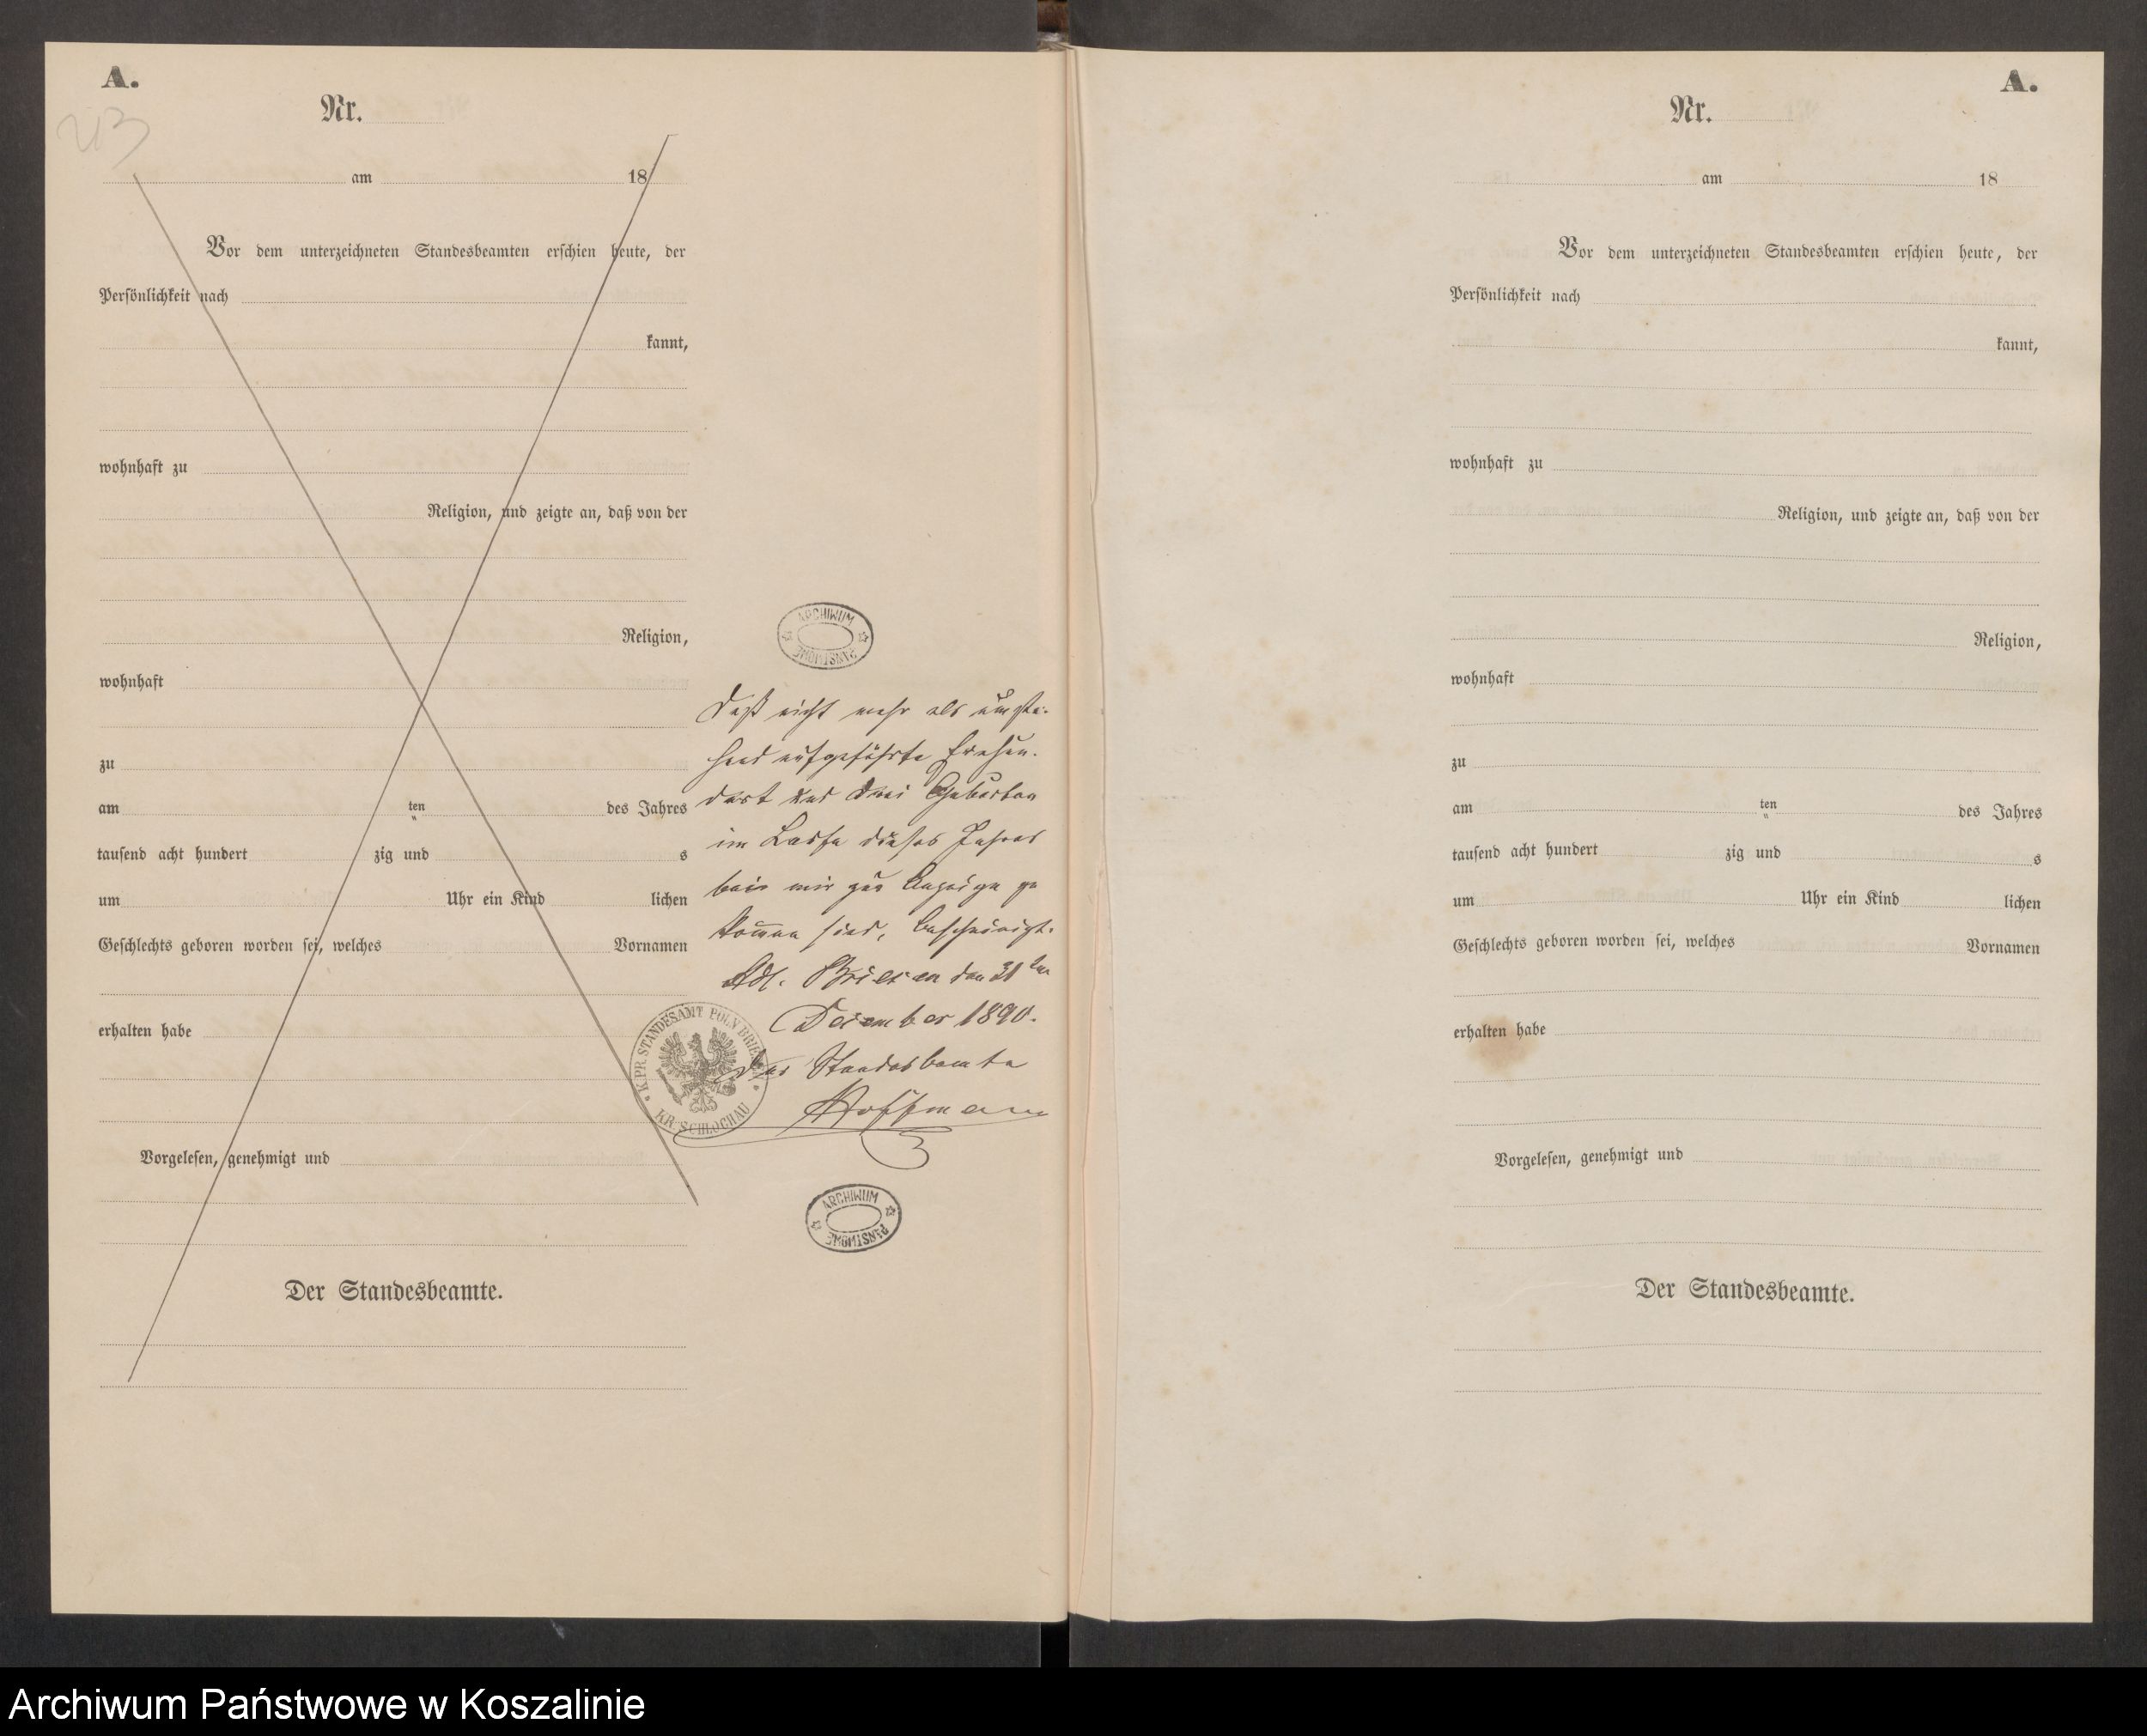 A.
213
Nr.
am 18
Vor dem unterzeichneten Standesbeamten erschien heute, der
Persönlichkeit nach
kannt,
wohnhaft zu
Religion, und zeigte an, daß von der
Religion,
wohnhaft
zu
am ten des Jahres
tausend acht hundert zig und s
um Uhr ein Kind lichen
Geschlechts geboren worden sei, welches Vornamen
erhalten habe
Vorgelesen, genehmigt und
Der Standesbeamte.
ARCHIWUM PAŃSTWOWE
Daß nicht mehr als umste-
hend aufgeführte Einhun-
dert und drei Geburten
im Laufe dieses Jahres
bei mir zur Anzeige ge
kom̅en sind, bescheinigt.
Adl. Briesen den 31ten
Dezember 1890.
Der Standesbeamte
Hoffmann
K. PR. STANDESAMT POLN BRIESEN
KR. SCHLOCHAU
ARCHIWUM PAŃSTWOWE
A.
Nr.
am 18
Vor dem unterzeichneten Standesbeamten erschien heute, der
Persönlichkeit nach
kannt,
wohnhaft zu
Religion, und zeigte an, daß von der
Religion,
wohnhaft
zu
am ten des Jahres
tausend acht hundert zig und s
um Uhr ein Kind lichen
Geschlechts geboren worden sei, welches Vornamen
erhalten habe
Vorgelesen, genehmigt und
Der Standesbeamte.
Archiwum Państwowe w Koszalinie